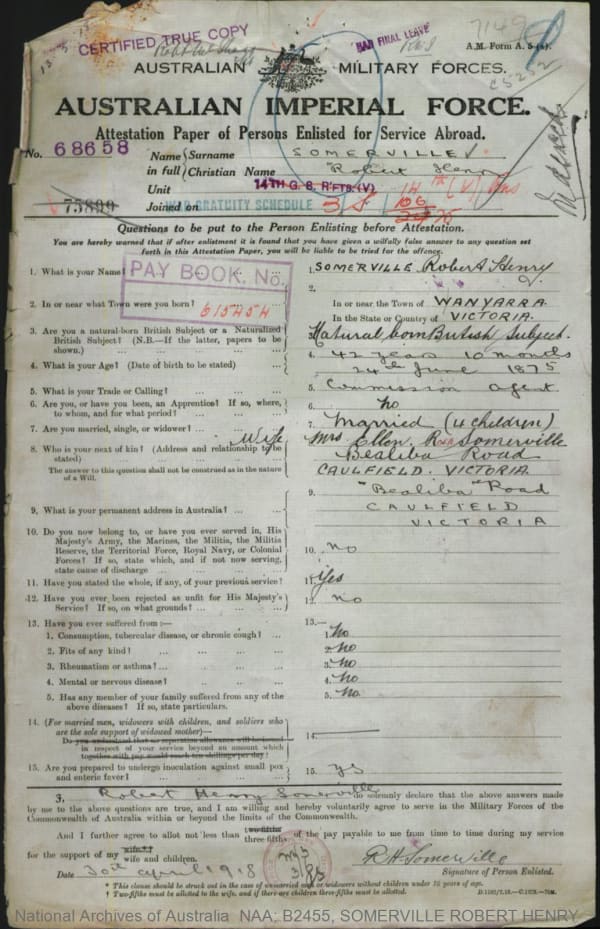 CERTIFIED TRUE COPY
HAD FINAL LEAVE
7149
A.M. Form A. 5-(a).
C5252
AUSTRALIAN MILITARY FORCES.
AUSTRALIAN IMPERIAL FORCE.
Attestation Paper of Persons Enlisted for Service Abroad.
No. 68658
Name in full { Surname SOMERVILLE
Christian Name Robert Henry
Unit 14TH G. S. R'FTS. (V)
75899
Joined on
WAR GRATUITY SCHEDULE
Questions to be put to the Person Enlisting before Attestation.
You are hereby warned that if after enlistment it is found that you have given a wilfully false answer to any question set
forth in this Attestation Paper, you will be liable to be tried for the offence.
PAY BOOK. No.
615454
1. What is your Name? 1. SOMERVILLE Robert Henry
2. In or near what Town were you born? 2. In or near the Town of WANYARRA
In the State or Country of VICTORIA.
3. Are you a natural-born British Subject or a Naturalized British Subject? (N.B.—If the latter, papers to be shown.) Natural born British Subject.
4. What is your Age? (Date of birth to be stated) 4. 42 years 10 months
24th June 1875
5. What is your Trade or Calling? 5. Commission agent
6. Are you, or have you been, an Apprentice? If so, where, to whom, and for what period? 6. no
7. Are you married, single, or widower? 7. Married (4 children)
8. Who is your next of kin? (Address and relationship to be stated) Wife Mrs Ellen Rosa Somerville
Bealiba Road
The answer to this question shall not be construed as in the nature of a Will. CAULFIELD. VICTORIA.
9. What is your permanent address in Australia? 9. "Bealiba" Road
CAULFIELD
VICTORIA
10. Do you now belong to, or have you ever served in, His Majesty's Army, the Marines, the Militia, the Militia Reserve, the Territorial Force, Royal Navy, or Colonial Forces? If so, state which, and if not now serving, state cause of discharge 10. no
11. Have you stated the whole, if any, of your previous service? 11. Yes
12. Have you ever been rejected as unfit for His Majesty's Service? If so, on what grounds? 12. no
13. Have you ever suffered from:— 13.—
1. Consumption, tubercular disease, or chronic cough? 1. no
2. Fits of any kind? 2. no
3. Rheumatism or asthma? 3. no
4. Mental or nervous disease? 4. no
5. Has any member of your family suffered from any of the above diseases? If so, state particulars. 5. no.
14. (For married men, widowers with children, and soldiers who are the sole support of widowed mother)— 14.
Do you understand that no separation allowance will be issued in respect of your service beyond an amount which together with pay would reach ten shillings per day?
15. Are you prepared to undergo inoculation against small pox and enteric fever? 15. yes
I, Robert Henry Somerville do solemnly declare that the above answers made
by me to the above questions are true, and I am willing and hereby voluntarily agree to serve in the Military Forces of the
Commonwealth of Australia within or beyond the limits of the Commonwealth.
And I further agree to allot not less than two-fifths three-fifths of the pay payable to me from time to time during my service
for the support of my wife*† wife and children.
Date 30th april 1918 R H Somerville
Signature of Person Enlisted.
* This clause should be struck out in the case of unmarried men or widowers without children under 18 years of age.
† Two-fifths must be allotted to the wife, and if there are children three-fifths must be allotted.
National Archives of Australia NAA: B2455, SOMERVILLE ROBERT HENRY